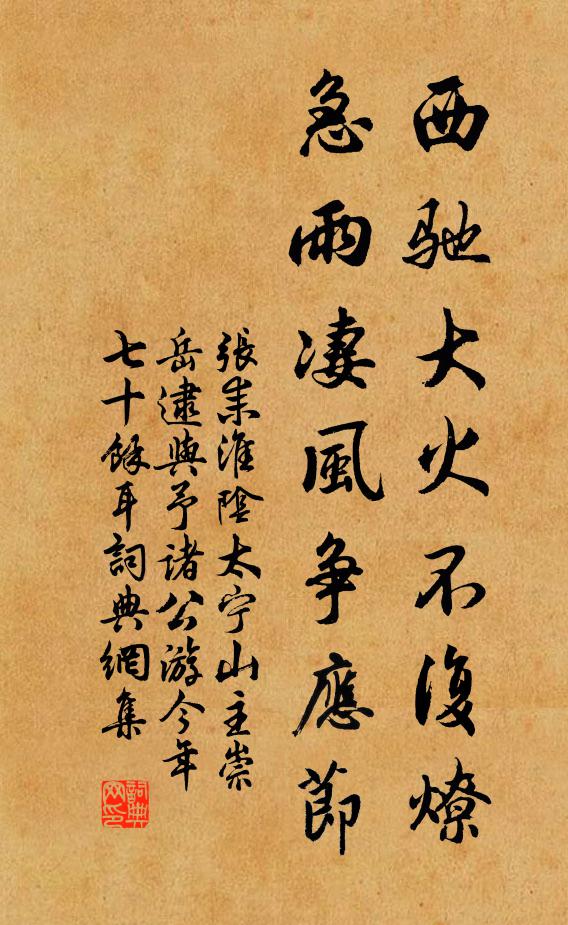 西馳大火不復燎
急雨凄風争應節
張耒淮陰太宁山主崇
岳逮與予诸公游今年
七十餘耳詞典網集
詞典网印